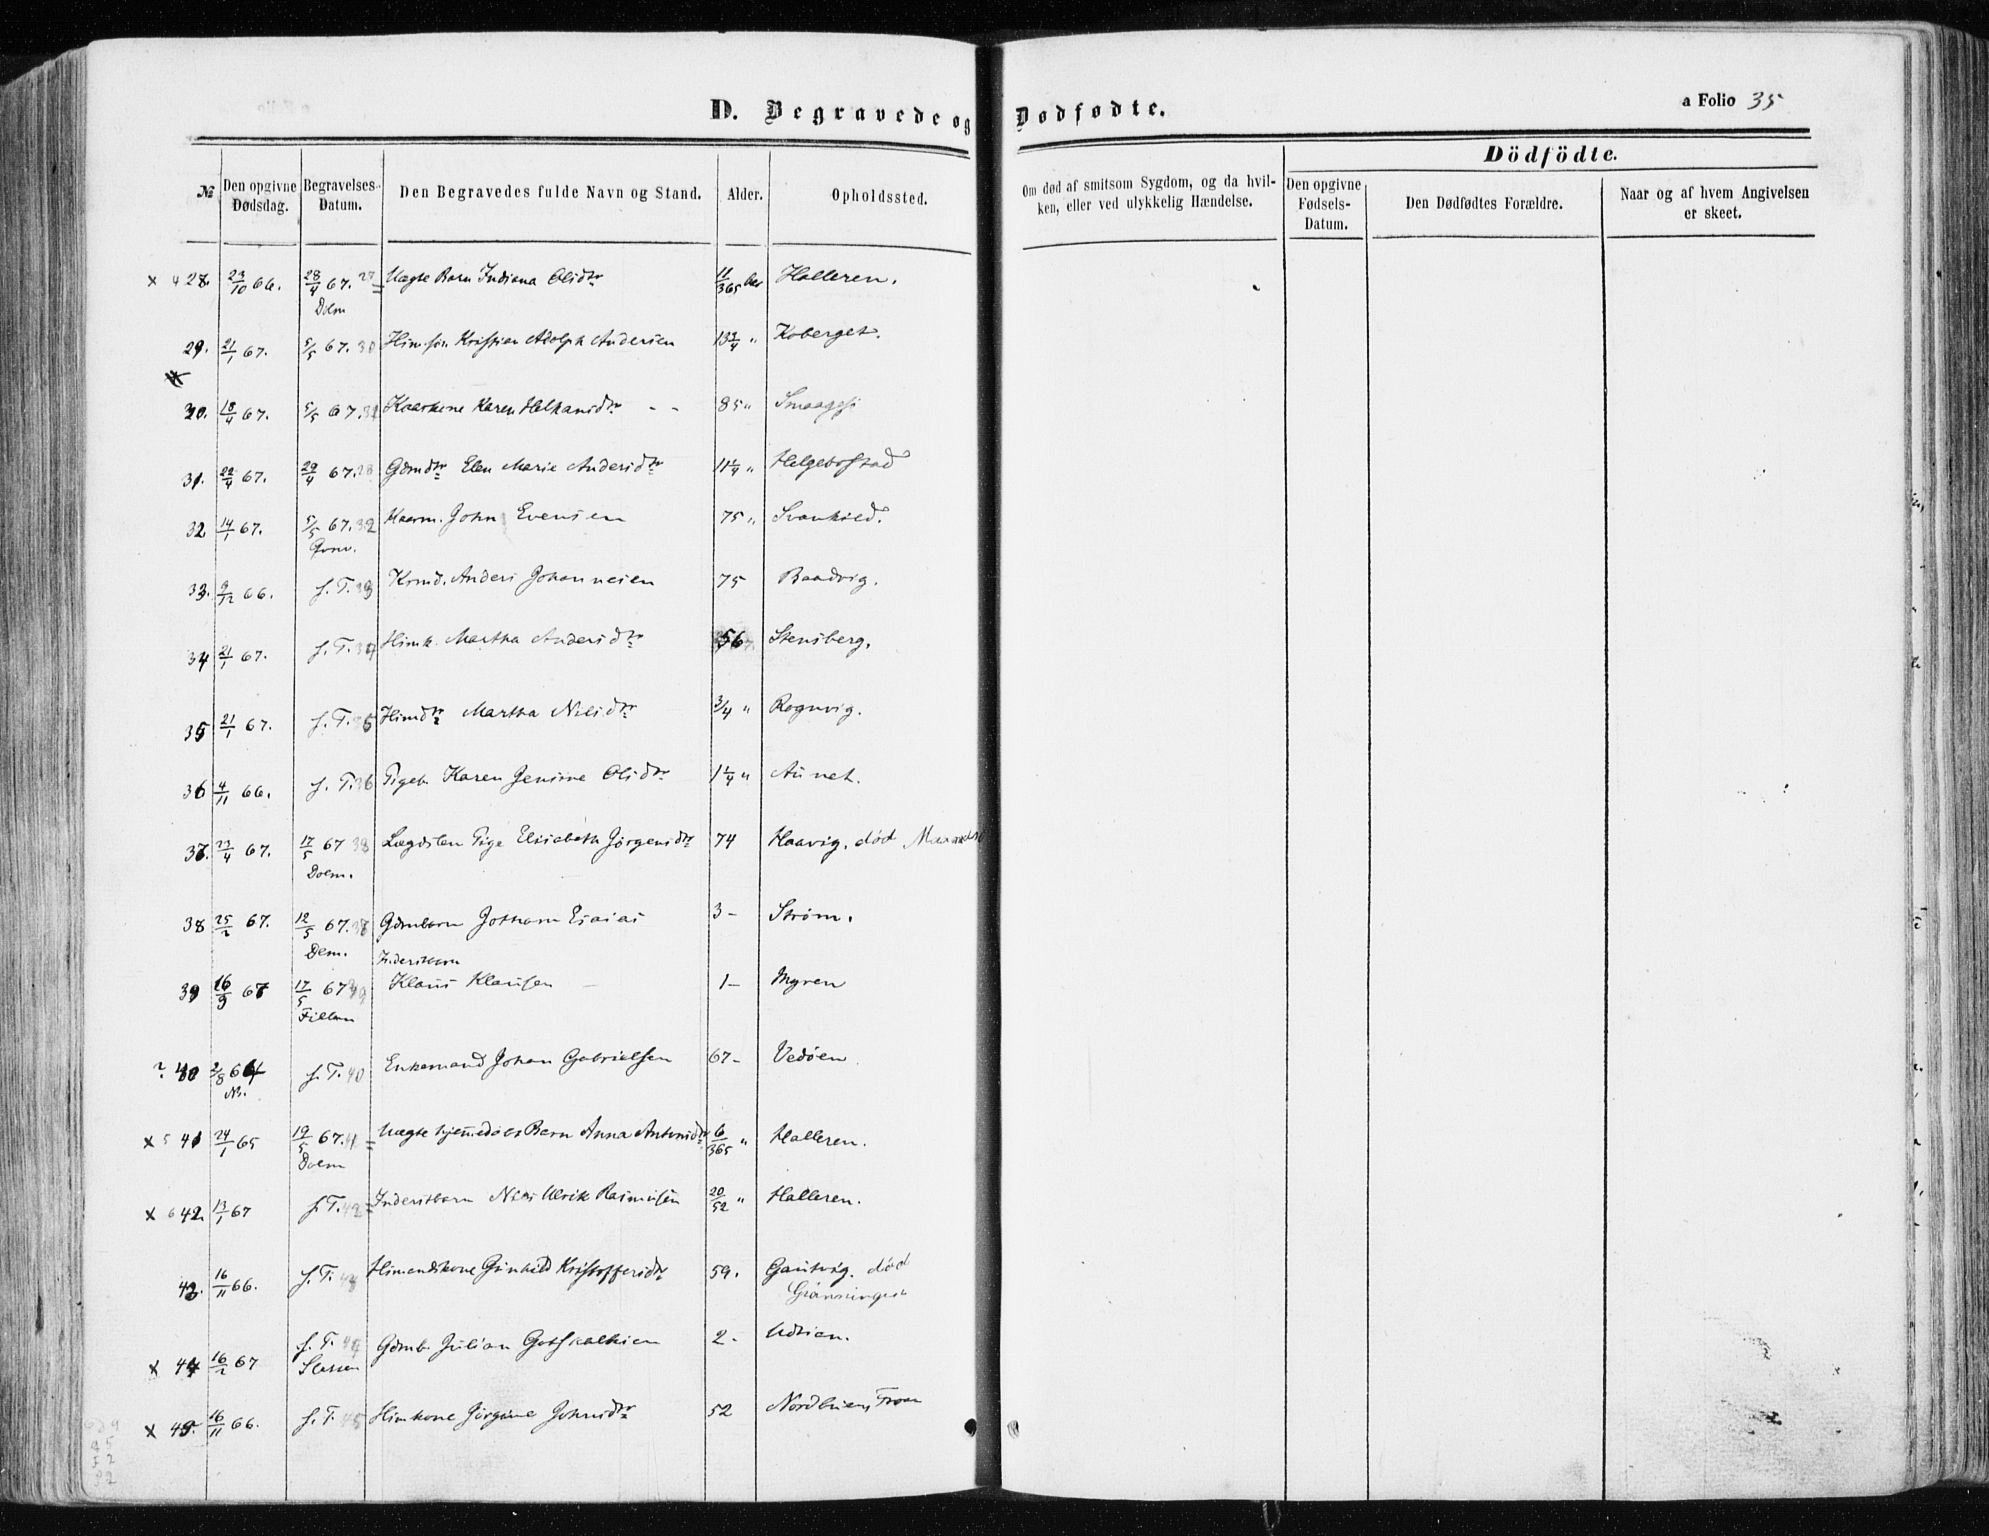 D. Begravede og Dødfødte.
a Folio 35
Dödfödte.
№ Den opgivne Dødsdag. Begravelses-Datum. Den Begravedes fulde Navn og Stand. Alder. Opholdssted. Om død af smitsom Sygdom, og da hvil-ken, eller ved ulykkelig Hændelse. Den opgivne Fødsels-Datum. Den Dødfødtes Forældre. Naar og af hvem Angivelsen er skeet.
x 4 28. 23/10 66. 28/4 67. 27 Uægte Barn Indiana Olsdtr 11/365 Aar Halleren.
Dolm
29. 21/1 67. 5/5 67. 30 Hsm.søn Kristian Adolph Andersen 13 3/4 " Koberget.
30. 18/4 67. 5/5 67. 31 Kaarkone Karen Helkansdtr - - 85 " Smaagesj
31. 22/4 67. 29/4 67. 28 Gdmdtr Elen Marie Andersdtr 11 1/4 " Helgebostad
32 14/1 67. 5/5 67. 32 Kaarm. John Evensen 75 " Svankild.
33. 9/12 66. s. T. 33 Krmd. Anders Johannesen 75 Baadvig.
34 21/1 67. s. T. 34 Hsmk. Martha Andersdtr 56 Stensberg.
35 21/1 67. s. T. 35 Hsmdtr Martha Nilsdtr 3/4 " Rognvig.
36 4/11 66. s. T. 36 Pigeb. Karen Jensine Olsdtr 1 1/4 " Aunet.
37. 23/4 67. 17/5 67 38 Lægdslem Pige Elisabeth Jörgensdtr 74 Haavig. død
Dolm.
38 25/2 67. 12/5 67. 37 Gdmbarn Jotham Esaias 3 - Strøm.
Dolm.
Inderstbarn
39 16/3 67 17/5 67 39 Klaus Klausen 1 - Myren
Fillan
? 40 2/8 64 s. T. 40 Enkemand Johan Gabrielsen 67 - Vedöen
Nb.
x 5 41 24/1 65 19/5 67. 41 Uægte hjemedøbt Barn Anna Antonsdtr 6/365 " Halleren.
Dolm
x 6 42. 13/1 67 s. T. 42 Inderstbarn Nils Ulrik Rasmusen 20/52 " Halleren.
43. 16/11 66. s. T. 43 Hsmandskone Gunhild Kristoffersdtr 59. Gautvig. død
x 44 16/2 67 s. T. 44 Gdmb. Julian Gotskalksen 2 - Udsien.
x 45. 16/11 66. s. T. 45 Hsmkone Jörgine Johnsdtr 52